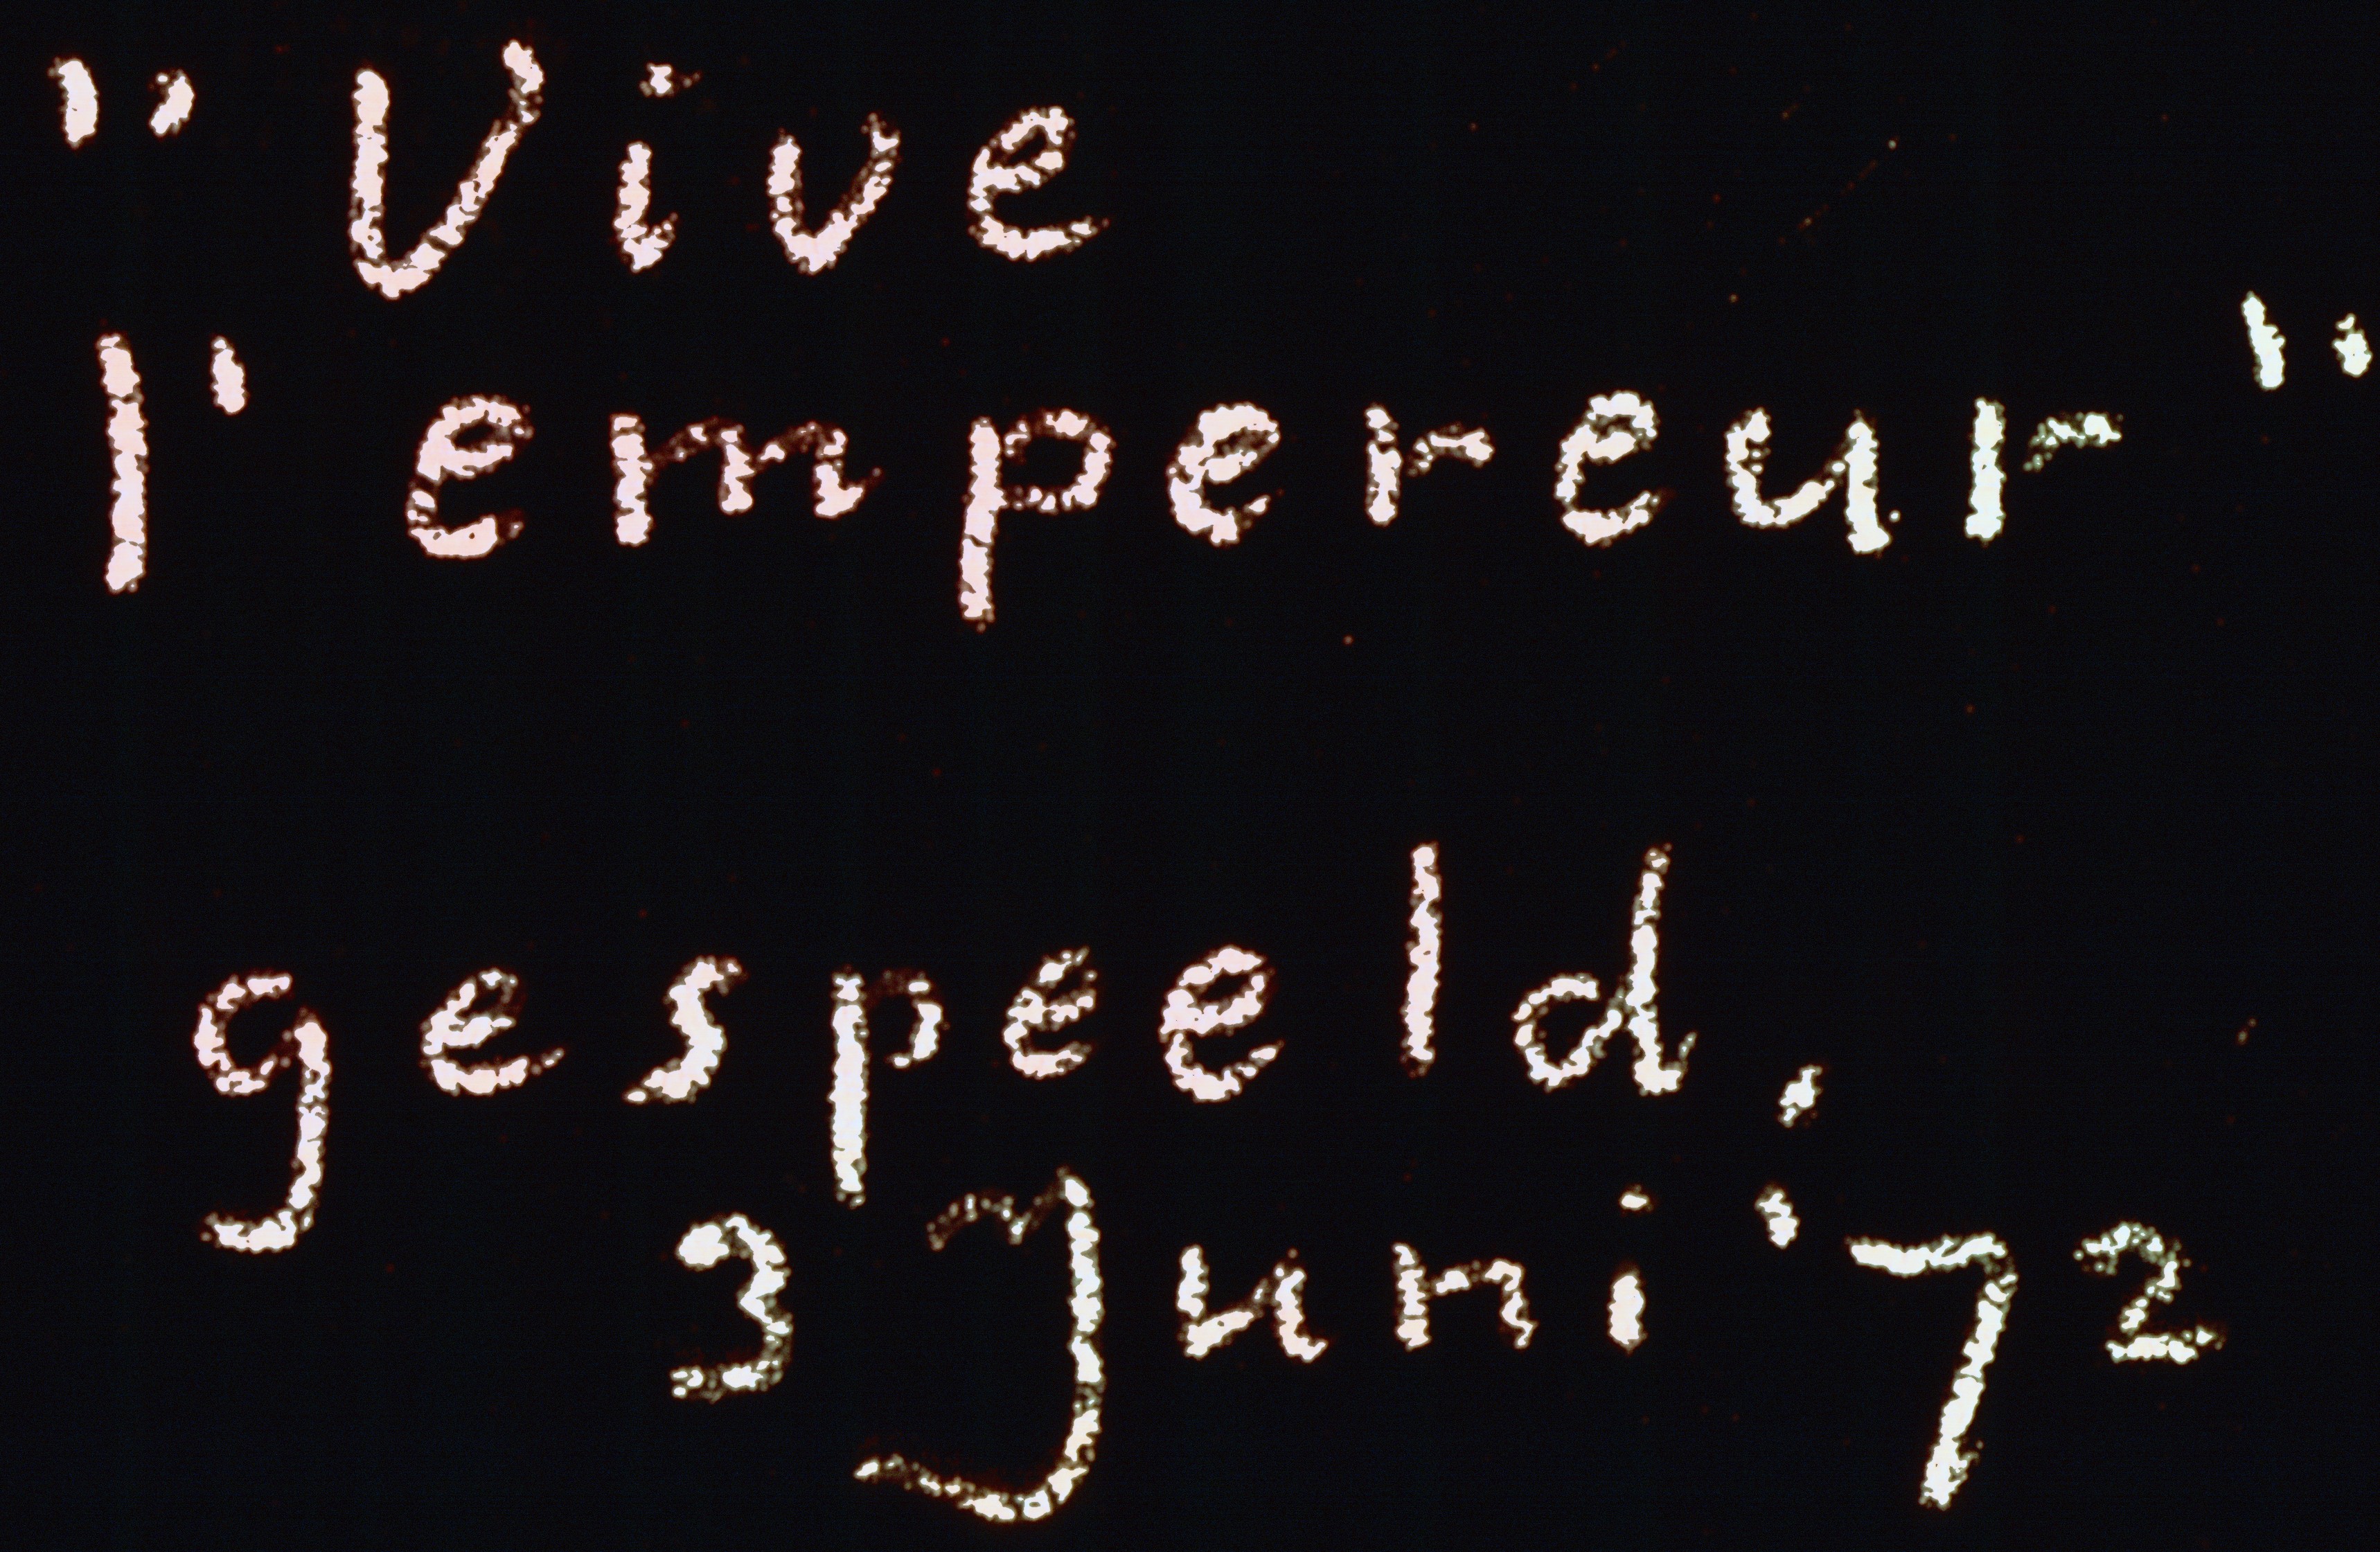 "Vive
l'empereur"
gespeeld.
3 Juni '72